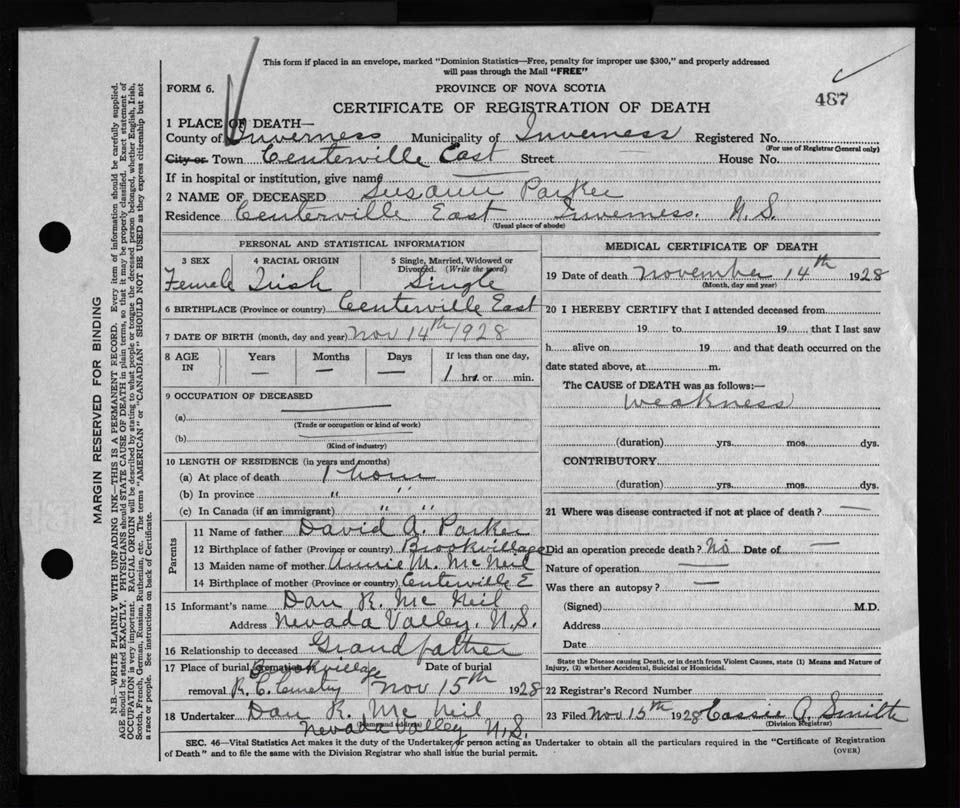 This form if placed in an envelope, marked "Dominion Statistics—Free, penalty for improper use $300," and properly addressed
will pass through the Mail "FREE"
FORM 6. PROVINCE OF NOVA SCOTIA
CERTIFICATE OF REGISTRATION OF DEATH
487
1 PLACE OF DEATH—
County of Inverness Municipality of Inverness Registered No.
(For use of Registrar General only)
City or Town Centerville East Street — House No.
If in hospital or institution, give name —
2 NAME OF DECEASED Susann Parker
Residence Centerville East Inverness. N.S.
(Usual place of abode)
PERSONAL AND STATISTICAL INFORMATION
3 SEX 4 RACIAL ORIGIN 5 Single, Married, Widowed or Divorced. (Write the word)
Female Irish Single
6 BIRTHPLACE (Province or country) Centerville East
7 DATE OF BIRTH (month, day and year) Nov 14th 1928
8 AGE IN Years Months Days If less than one day,
— — — 1 hrs. or min.
9 OCCUPATION OF DECEASED
(a) —
(Trade or occupation or kind of work)
(b) —
(Kind of industry)
10 LENGTH OF RESIDENCE (in years and months)
(a) At place of death 1 hour
(b) In province " "
(c) In Canada (if an immigrant) " "
Parents
11 Name of father David A. Parker
12 Birthplace of father (Province or country) Brookvillage
13 Maiden name of mother Annie M. McNeil
14 Birthplace of mother (Province or country) Centerville E
15 Informant's name Dan R. McNeil
Address Nevada Valley. N.S.
16 Relationship to deceased Grandfather
17 Place of burial, cremation or Brookvillage Date of burial
removal R.C. Cemetery Nov 15th 1928
18 Undertaker Dan R. McNeil
(Name and address)
Nevada Valley N.S.
MEDICAL CERTIFICATE OF DEATH
19 Date of death November 14th 1928
(Month, day and year)
20 I HEREBY CERTIFY that I attended deceased from
19 to 19 that I last saw
h alive on 19 and that death occurred on the
date stated above, at m.
The CAUSE of DEATH was as follows:—
Weakness
(duration) yrs. mos. dys.
CONTRIBUTORY
(duration) yrs. mos. dys.
21 Where was disease contracted if not at place of death? —
Did an operation precede death? No Date of —
Nature of operation —
Was there an autopsy? —
(Signed) M.D.
Address
Date
State the Disease causing Death, or in death from Violent Causes, state (1) Means and Nature of
Injury, (2) whether Accidental, Suicidal or Homicidal.
22 Registrar's Record Number
23 Filed Nov 15th 1928 Cassie A. Smith
(Division Registrar)
SEC. 46—Vital Statistics Act makes it the duty of the Undertaker or person acting as Undertaker to obtain all the particulars required in the "Certificate of Registration
of Death" and to file the same with the Division Registrar who shall issue the burial permit.
(OVER)
MARGIN RESERVED FOR BINDING
N.B.—WRITE PLAINLY WITH UNFADING INK—THIS IS A PERMANENT RECORD. Every item of information should be carefully supplied.
AGE should be stated EXACTLY. PHYSICIANS should STATE CAUSE OF DEATH in plain terms, so that it may be properly classified. Exact statement of
OCCUPATION is very important. RACIAL ORIGIN will be described by stating to what people or tongue the deceased person belonged, whether English, Irish,
Scotch, French, German, Russian, Ruthenian, etc. The terms "AMERICAN" or "CANADIAN" SHOULD NOT BE USED as they express citizenship but not
a race or people. See instructions on back of Certificate.